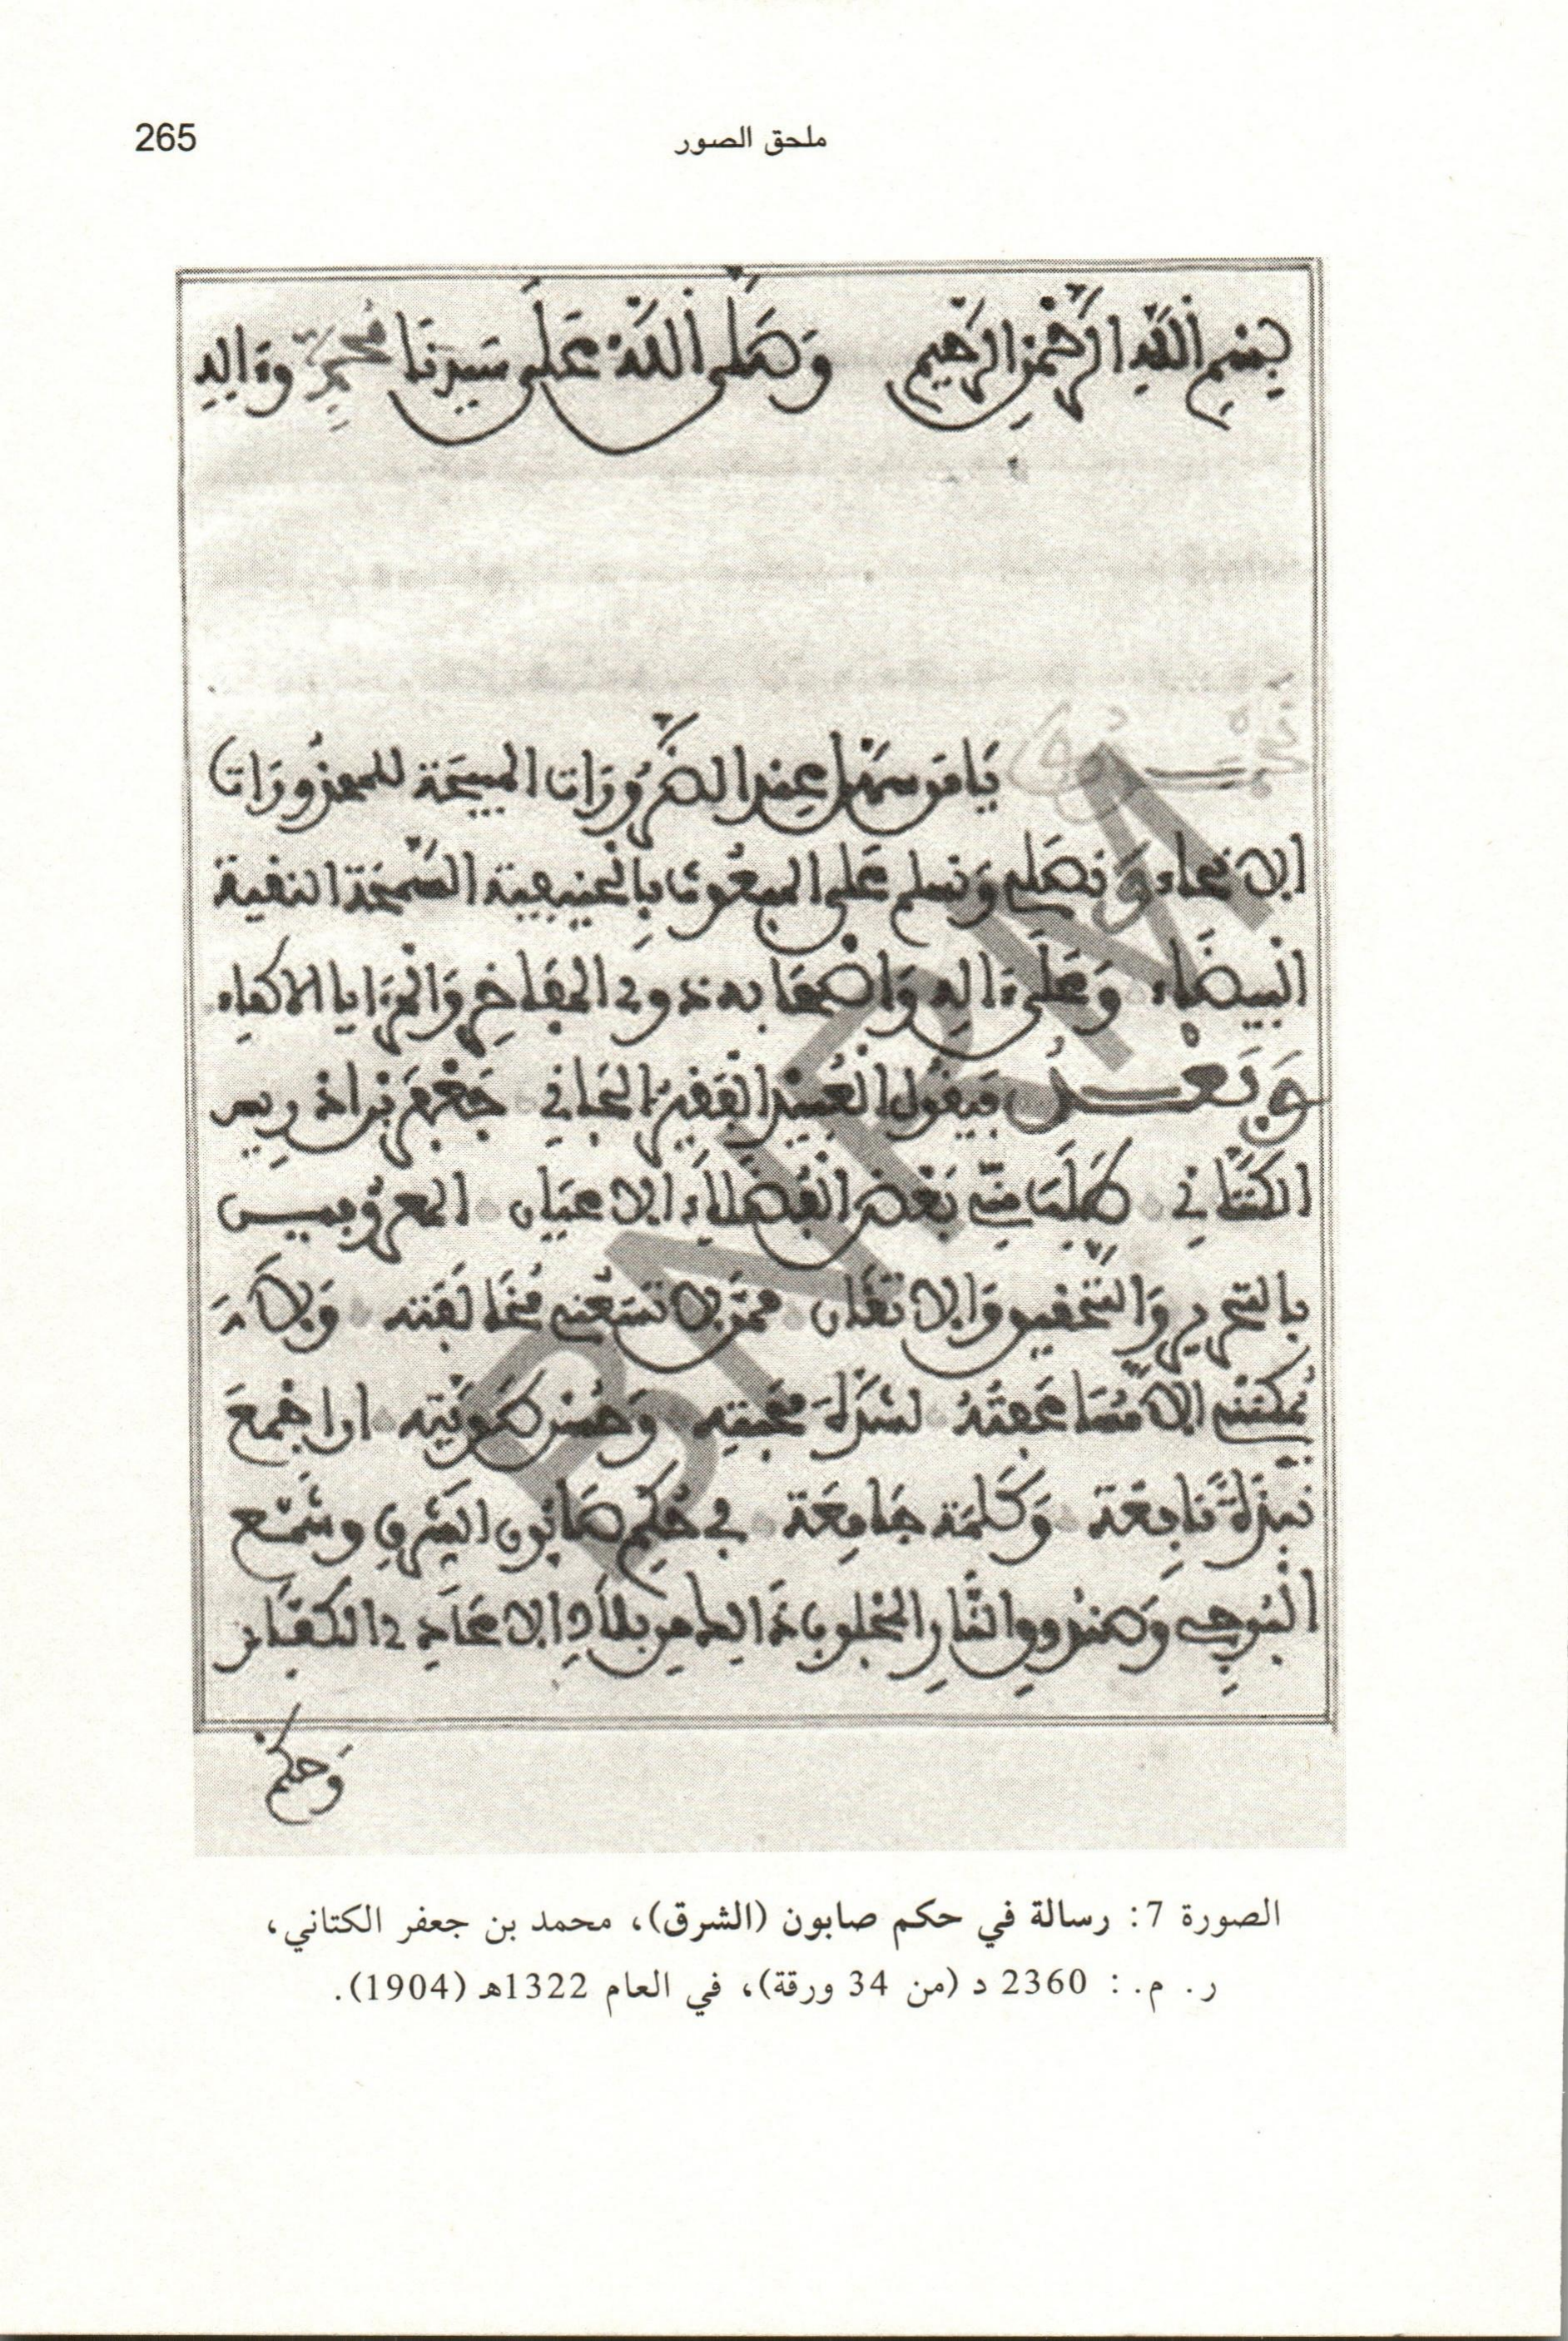 ملحق الصور
265
بسم الله الرحمن الرحيم وصلى الله على سيدنا محمد وءاله
نحمدك يا من سهل عند الضرورات المبيحة للمحذورات
الانحاء ونصلي ونسلم على المبعوث بالحنيفية السمحة النقية
البيضاء وعلى ءاله واصحابه ذوي المفاخر والمزايا الاكفاء
وبعد فيقول العبيد الفقير الجاني جعفر بن ادريس
الكتاني طلب مني بعض الفضلاء الاعيان المعروفين
بالتحرير والتحقيق والاتقان ممن لا تسعني مخالفته ولا
يمكنني الا مساعفته لشدة محبته وحسن طويته ان اجمع
نبذة نافعة وكلمة جامعة في حكم صابون الشرق وشمع
البوجي وصندوق النار المجلوب ذلك من بلاد الاعادي الكفار
وحكم
الصورة 7: رسالة في حكم صابون (الشرق)، محمد بن جعفر الكتاني،
ر. م. : 2360 د (من 34 ورقة)، في العام 1322هـ (1904).